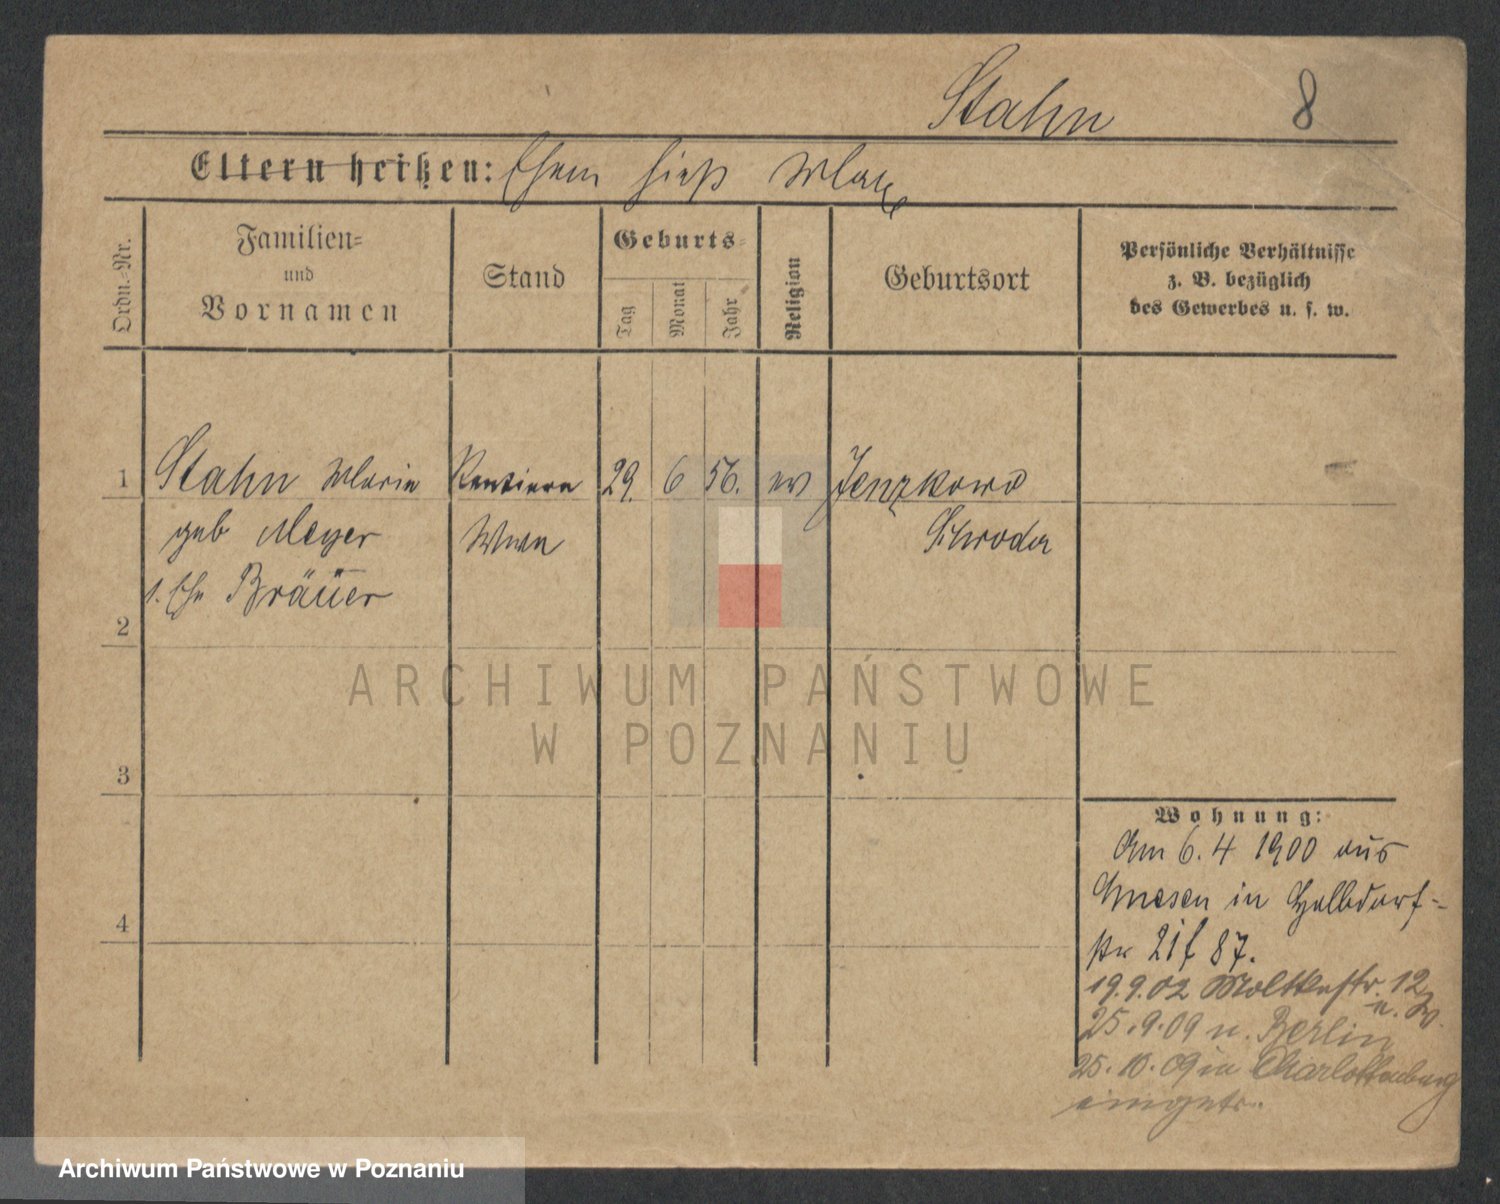 Stahn 8
Eltern heißen: Ehem hieß Max
Ordn.-Nr.
Familien-
und
Vornamen
Stand
Geburts-
Tag
Monat
Jahr
Religion
Geburtsort
Persönliche Verhältnisse
z. B. bezüglich
des Gewerbes u. s. w.
1 Stahn Marie Rentiere 29. 6 56. ev Jenzkowo
geb Meyer Wwe Schroda
1. Ehe Bräuer
2
3
4
Wohnung:
Am 6. 4 1900 aus
Gnesen in Halbdorf-
str 21 87.
19.9.02 Moltkestr. 12
25.9.09 n. Berlin
25.10.09 in Charlottenburg
eingetr.
ARCHIWUM PAŃSTWOWE
W POZNANIU
Archiwum Państwowe w Poznaniu